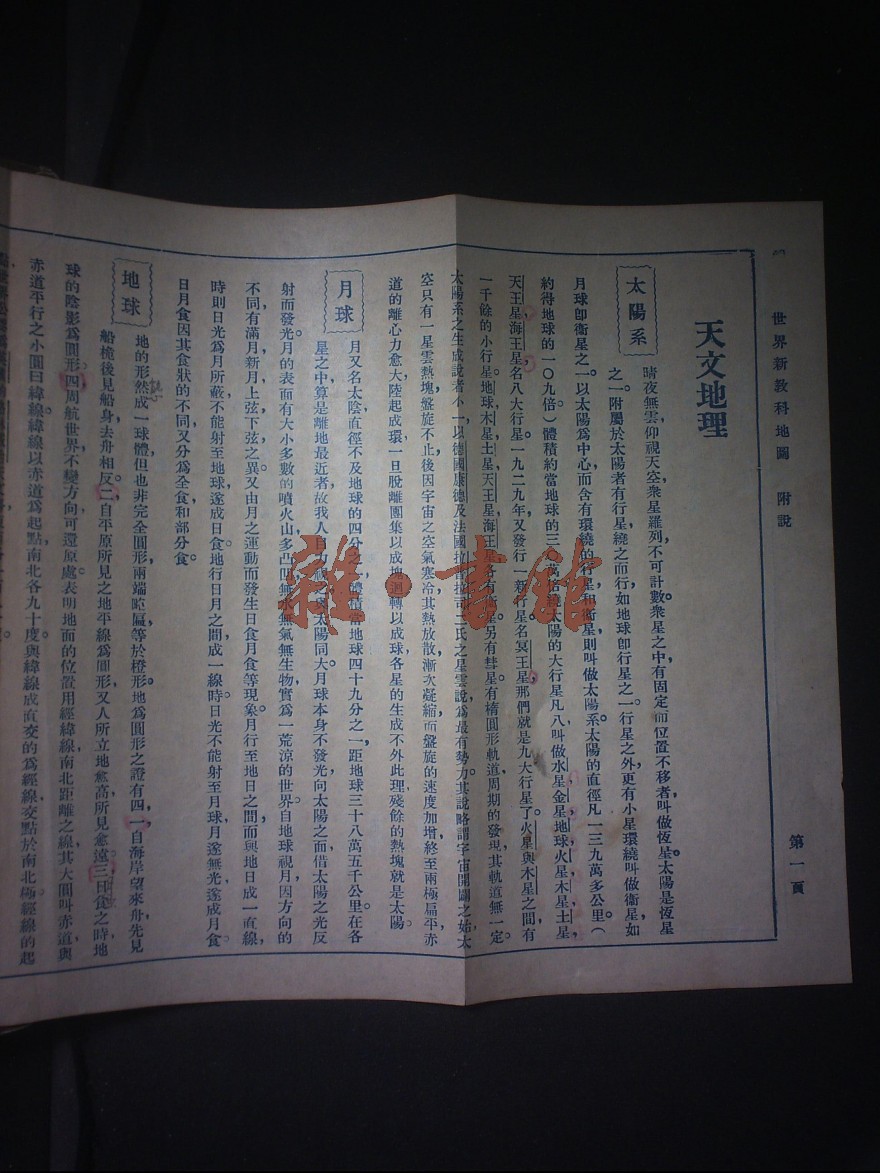 世界新教科地圖 附說
第一頁
天文地理
太陽系
晴夜無雲,仰視天空,衆星羅列,不可計數。衆星之中,有固定而位置不移者叫做恆星。太陽是恆星
之一。附屬於太陽者有行星,繞之而行,如地球卽行星之一。行星之外,更有小星環繞,叫做衞星,如
月球卽衞星之一。以太陽爲中心,而含有環繞的行星和衞星,則叫做太陽系。太陽的直徑凡一三九萬多公里。(
約得地球的一〇九倍)體積約當地球的三〇萬倍,繞太陽的大行星凡八,叫做水星金星地球火星木星土星,
天王星海王星,名八大行星。一九二九年又發行一新行星,名冥王星,那們就是九大行星了。火星與木星之間,有
一千餘的小行星。地球木星土星天王星海王星各有衞星。另有彗星,有橢圓形軌道,周期的發現,其軌道無一定。
太陽系之生成,說者小一,以德國康德及法國拉普拉司二氏之星雲說爲最有勢力。其說略謂宇宙開闢之始,太
空只有一星雲熱塊,盤旋不止,後因宇宙之空氣寒冷,其熱放散,漸次凝縮,而盤旋的速度加增,終至兩極扁平,赤
道的離心力愈大,陸起成環,一旦脫離團集以成塊,迴轉以成球,各星的生成不外此理,殘餘的熱塊就是太陽。
月球
月又名太陰,直徑不及地球的四分之一,體積當地球四十九分之一,距地球三十八萬五千公里,在各
星之中算是離地最近者,故我人目力視之與太陽同大。月球本身不發光,向太陽之面借太陽之光反
射而發光。月的表面有大小多數的噴火山,多凸凹,無水無氣無生物,實爲一荒涼的世界。自地球視月,因方向的
不同,有滿月,新月,上弦下弦之異。又由月之運動而發生日食月食等現象。月行至地日之間而與地日成一直線
時,則日光爲月所蔽,不能射至地球,遂成日食。地行日月之間成一線時,日光不能射至月球,月遂無光,遂成月食。
日月食因其食狀的不同,又分爲全食和部分食。
地球
地的形然成一球體,但也非完全圓形,兩端略匾,等於橙形。地爲圓形之證有四,一自海岸望來舟,先見
船桅,後見船身,去舟相反。二自平原所見之地平線爲圓形,又人所立地愈高,所見愈遠。三日食之時,地
球的陰影爲圓形。四周航世界,不變方向可還原處。表明地面的位置用經緯線。南北距離之線,其大圓叫赤道,與
赤道平行之小圓曰緯線。緯線以赤道爲起點,南北各九十度。與緯線成直交的爲經線,交點於南北極。經線的起
雜·書館